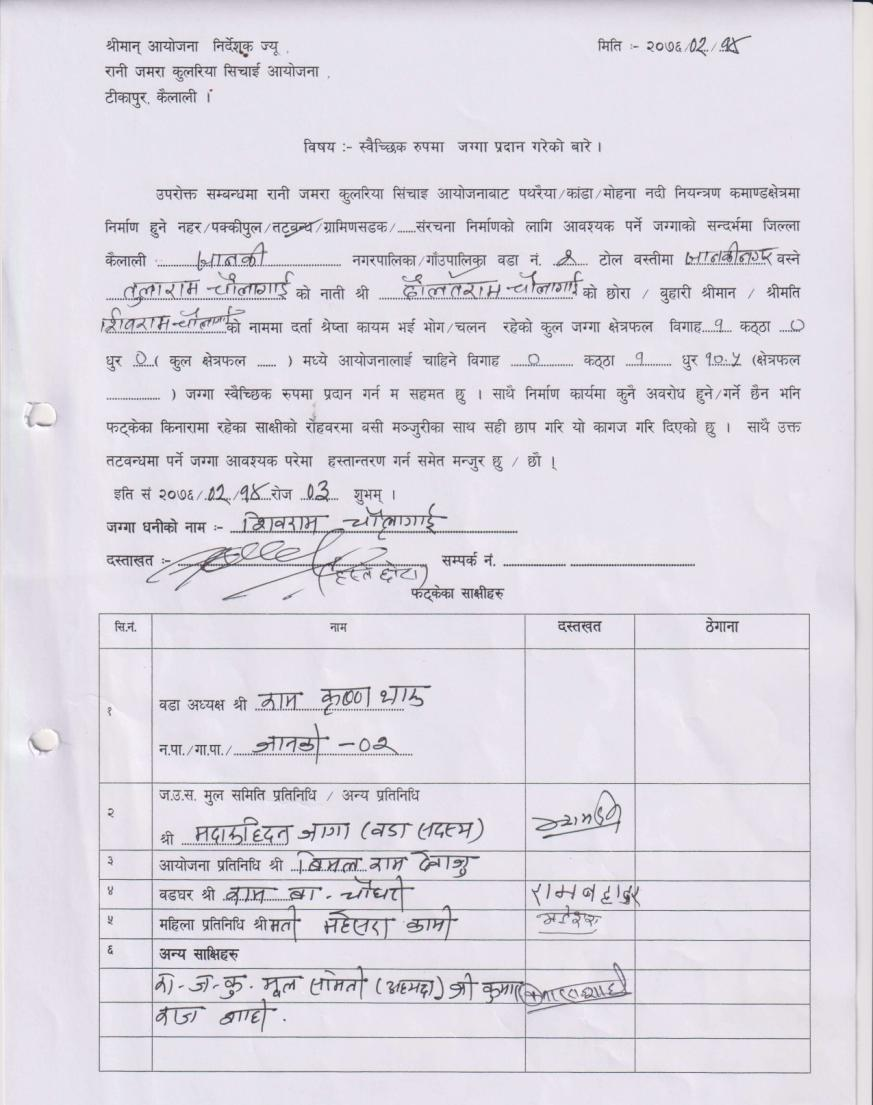 श्रीमान् आयोजना निर्देशक ज्यू , मिति :- २०७६/०२/१४
रानी जमरा कुलरिया सिचाई आयोजना ,
टीकापुर, कैलाली ।
विषय :- स्वैच्छिक रुपमा जग्गा प्रदान गरेको बारे ।
उपरोक्त सम्बन्धमा रानी जमरा कुलरिया सिंचाइ आयोजनाबाट पथरैया/कांडा/मोहना नदी नियन्त्रण कमाण्डक्षेत्रमा
निर्माण हुने नहर/पक्कीपुल/तटबन्ध/ग्रामिणसडक/......संरचना निर्माणको लागि आवश्यक पर्ने जग्गाको सन्दर्भमा जिल्ला
कैलाली जानकी नगरपालिका/गाँउपालिका वडा नं. २ टोल वस्तीमा जानकीनगर वस्ने
तुलाराम चौलागाई को नाती श्री दौलतराम चौलागाई को छोरा / वुहारी श्रीमान / श्रीमति
शिवराम चौलागाई को नाममा दर्ता श्रेप्ता कायम भई भोग/चलन रहेको कुल जग्गा क्षेत्रफल विगाह १ कठ्ठा ०
धुर ० ( कुल क्षेत्रफल ...... ) मध्ये आयोजनालाई चाहिने विगाह ० कठ्ठा १ धुर १०.५ (क्षेत्रफल
.................... ) जग्गा स्वैच्छिक रुपमा प्रदान गर्न म सहमत छु । साथै निर्माण कार्यमा कुनै अवरोध हुने/गर्ने छैन भनि
फट्केका किनारामा रहेका साक्षीको रोहवरमा वसी मञ्जुरीका साथ सही छाप गरि यो कागज गरि दिएको छु । साथै उक्त
तटवन्धमा पर्ने जग्गा आवश्यक परेमा हस्तान्तरण गर्न समेत मन्जुर छु / छौ ।
इति सं २०७६/०२/१४ रोज ०३ शुभम् ।
जग्गा धनीको नाम :- शिवराम चौलागाई
दस्ताखत :- सम्पर्क नं. ........................................
फट्केका साक्षीहरु
सि.नं. नाम दस्तखत ठेगाना
१ वडा अध्यक्ष श्री राम कृष्ण थारु
न.पा./गा.पा./ जानकी -०२
२ ज.उ.स. मुल समिति प्रतिनिधि / अन्य प्रतिनिधि
श्री (वडा सदस्य)
३ आयोजना प्रतिनिधि श्री बिमल राम
४ वडघर श्री राम बा. चौधरी रामबहादुर
५ महिला प्रतिनिधि श्रीमती महेसरा कामी
६ अन्य साक्षिहरु
रा-ज-कु- मूल समिती (अध्यक्ष) श्री कुमार
राज शाही.